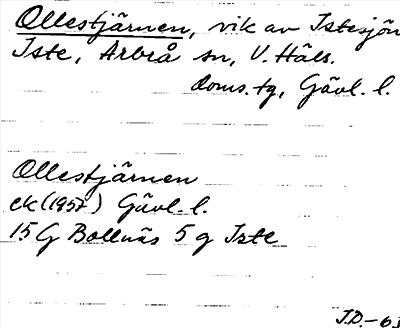 Ollestjärnen, vik av Istesjön
Iste, Arbrå sn, V. Häls.
doms. tg, Gävl. l.
Ollestjärnen
ek (1957) Gävl. l.
15G Bollnäs 5 g Iste
J.D. -63